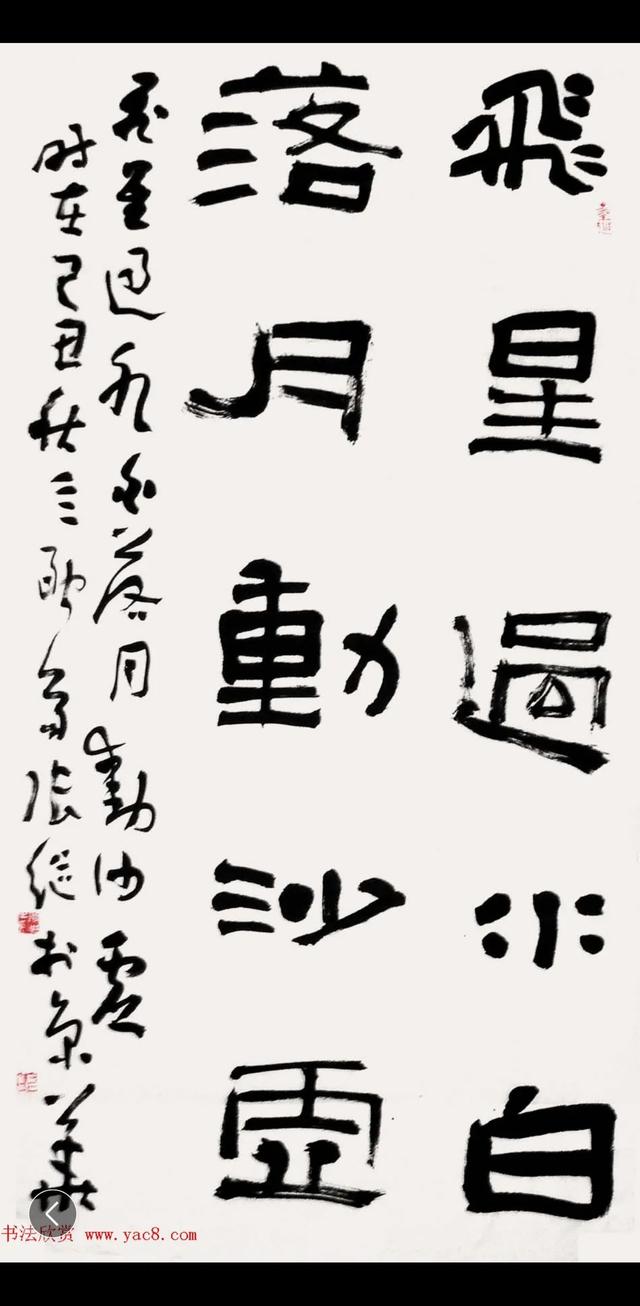 飛星過水白
落月動沙虛
飛星過水白落月動沙虛
时在己丑秋三斋张继於京華
书法欣赏 www.yac8.com